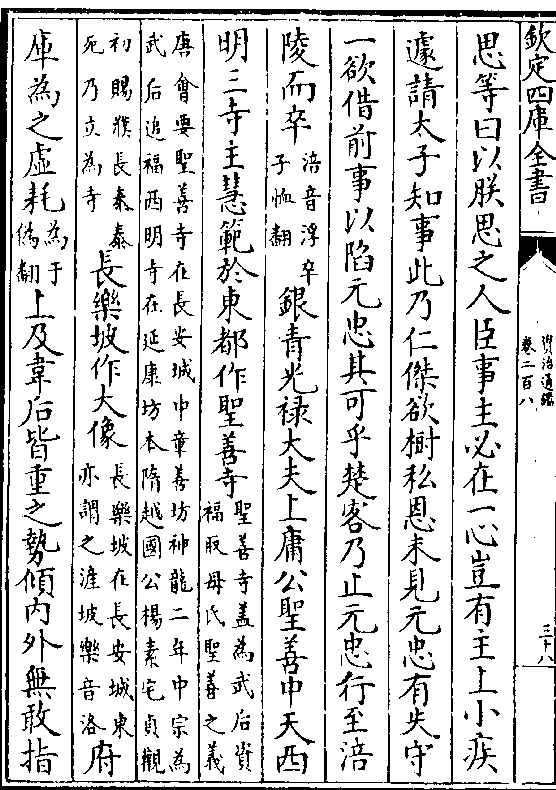 欽定四庫全書
資治通鑑
卷二百八
三十八
思等曰以朕思之人臣事主必在一心豈有主上小疾
遽請太子知事此乃仁傑欲樹私恩未見元忠有失守
一欲借前事以陷元忠其可乎楚客乃止元忠行至涪
陵而卒涪音浮卒子恤翻銀青光禄大夫上庸公聖善中天西
明三寺主慧範於東都作聖善寺聖善寺盖為武后資福取母氏聖善之義
唐會要聖善寺在長安城中章善坊神龍二年中宗為武后追福西明寺在延康坊本隋越國公楊素宅貞觀
初賜濮長泰泰死乃立為寺長樂坡作大像長樂坡在長安城東亦謂之滻坡樂音洛府
庫為之虚耗為于偽翻上及韋后皆重之勢傾内外無敢指